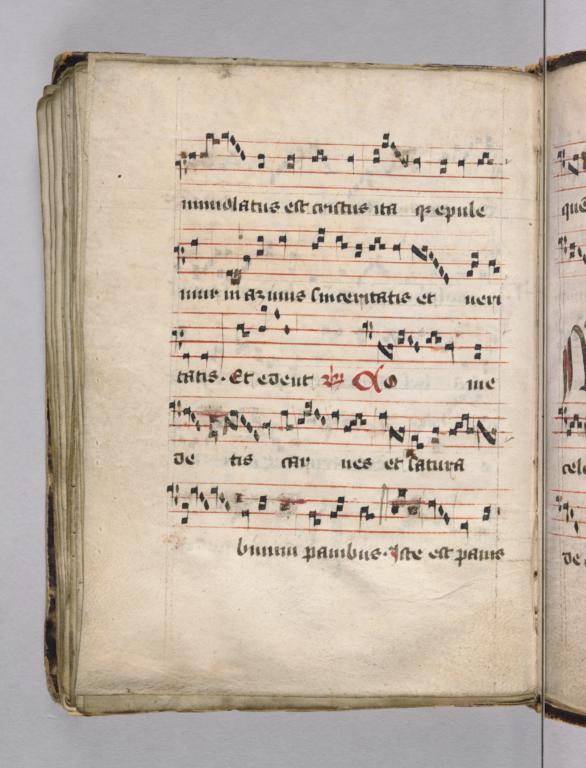 mmolatus est cristus ita qꝫ epule
mur in azimis sinceritatis et veri
tatis. Et edent Co me
de tis car nes et satura
bimini panibus. Iste est panis
que
cele
de